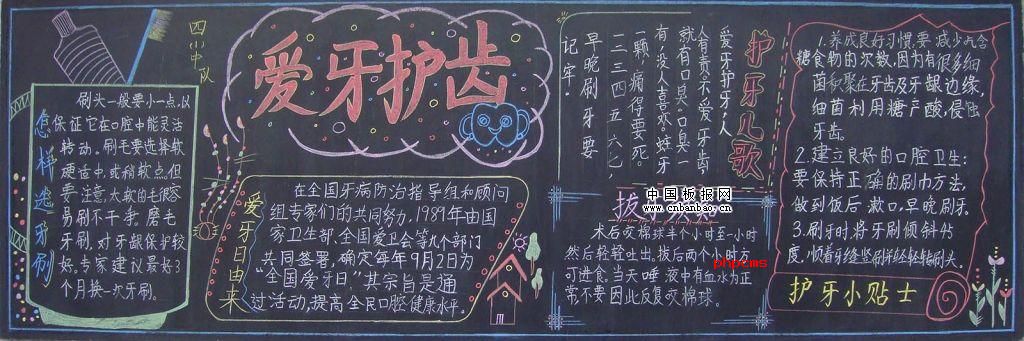 四
中队
怎样选牙刷
刷头一般要小一点,以
保证它在口腔中能灵活
转动。刷毛要选择软
硬适中,或稍软点,但
要注意,太软的毛很容
易刷不干净。磨毛
牙刷,对牙龈保护较
好。专家建议最好3
个月换一次牙刷。
爱牙护齿
爱牙日由来
在全国牙病防治指导组和顾问
组专家们的共同努力,1989年由国
家卫生部、全国爱卫会等九个部门
共同签署,确定每年9月2日为
“全国爱牙日”,其宗旨是通
过活动,提高全民口腔健康水平。
护牙儿歌
爱牙护牙,人
人有责。不爱牙齿,
就有口臭。口臭一
有,没人喜欢。蛀牙
一颗,病得要死。
一二三四五六七,
早晚刷牙要
记牢!
中国板报网
www.cnbanbao.cn
拔
术后咬棉球半个小时至一小时
然后轻轻吐出,拔后两个小时
可进食。当天唾液中有血水为正
常不要因此反复咬棉球。
phpcms
1.养成良好习惯,要减少含
糖食物的次数,因为有很多细
菌积聚在牙齿及牙龈边缘,
细菌利用糖产酸,侵蚀
牙齿。
2.建立良好的口腔卫生:
要保持正确的刷牙方法,
做到饭后漱口,早晚刷牙。
3.刷牙时将牙刷倾斜45
度,顺着牙缝竖刷轻轻刷头。
护牙小贴士